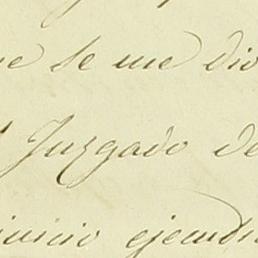 se me dio
Juzgado de
juicio ejecu